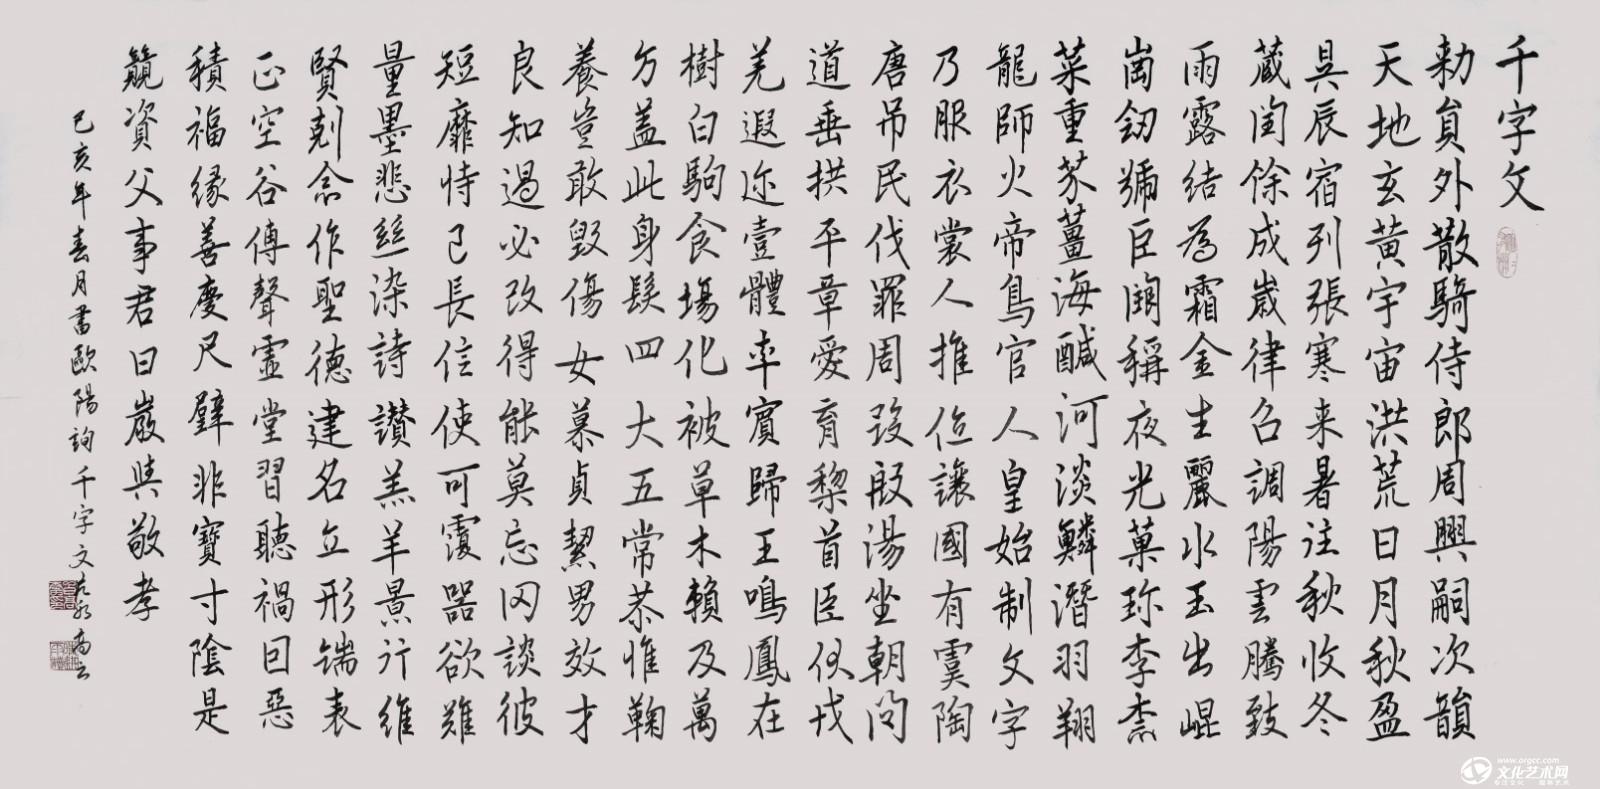 千字文
勅員外散騎侍郎周興嗣次韻
天地玄黃宇宙洪荒日月秋盈
昃辰宿列張寒来暑往秋收冬
蔵閏餘成歲律召調陽雲騰致
雨露結為霜金生麗水玉出崐
崗劒號臣闕稱夜光菓珎李柰
菜重芥薑海醎河淡鱗潛羽翔
龍師火帝鳥官人皇始制文字
乃服衣裳人推位讓國有虞陶
唐吊民伐罪周發殷湯坐朝問
道垂拱平章愛育黎首臣伏戎
羌遐迩壹體率賓歸王鳴鳳在
樹白駒食場化被草木賴及萬
方蓋此身髮四大五常恭惟鞠
養豈敢毀傷女慕貞絜男效才
良知過必改得能莫忘罔談彼
短靡恃己長信使可覆器欲難
量墨悲絲染詩讚羔羊景行維
賢剋念作聖德建名立形端表
正空谷傳聲虛堂習聽禍因惡
積福緣善慶尺璧非寶寸陰是
競資父事君曰嚴與敬孝
己亥年春月書歐陽詢千字文
www.orgcc.com
文化艺术网